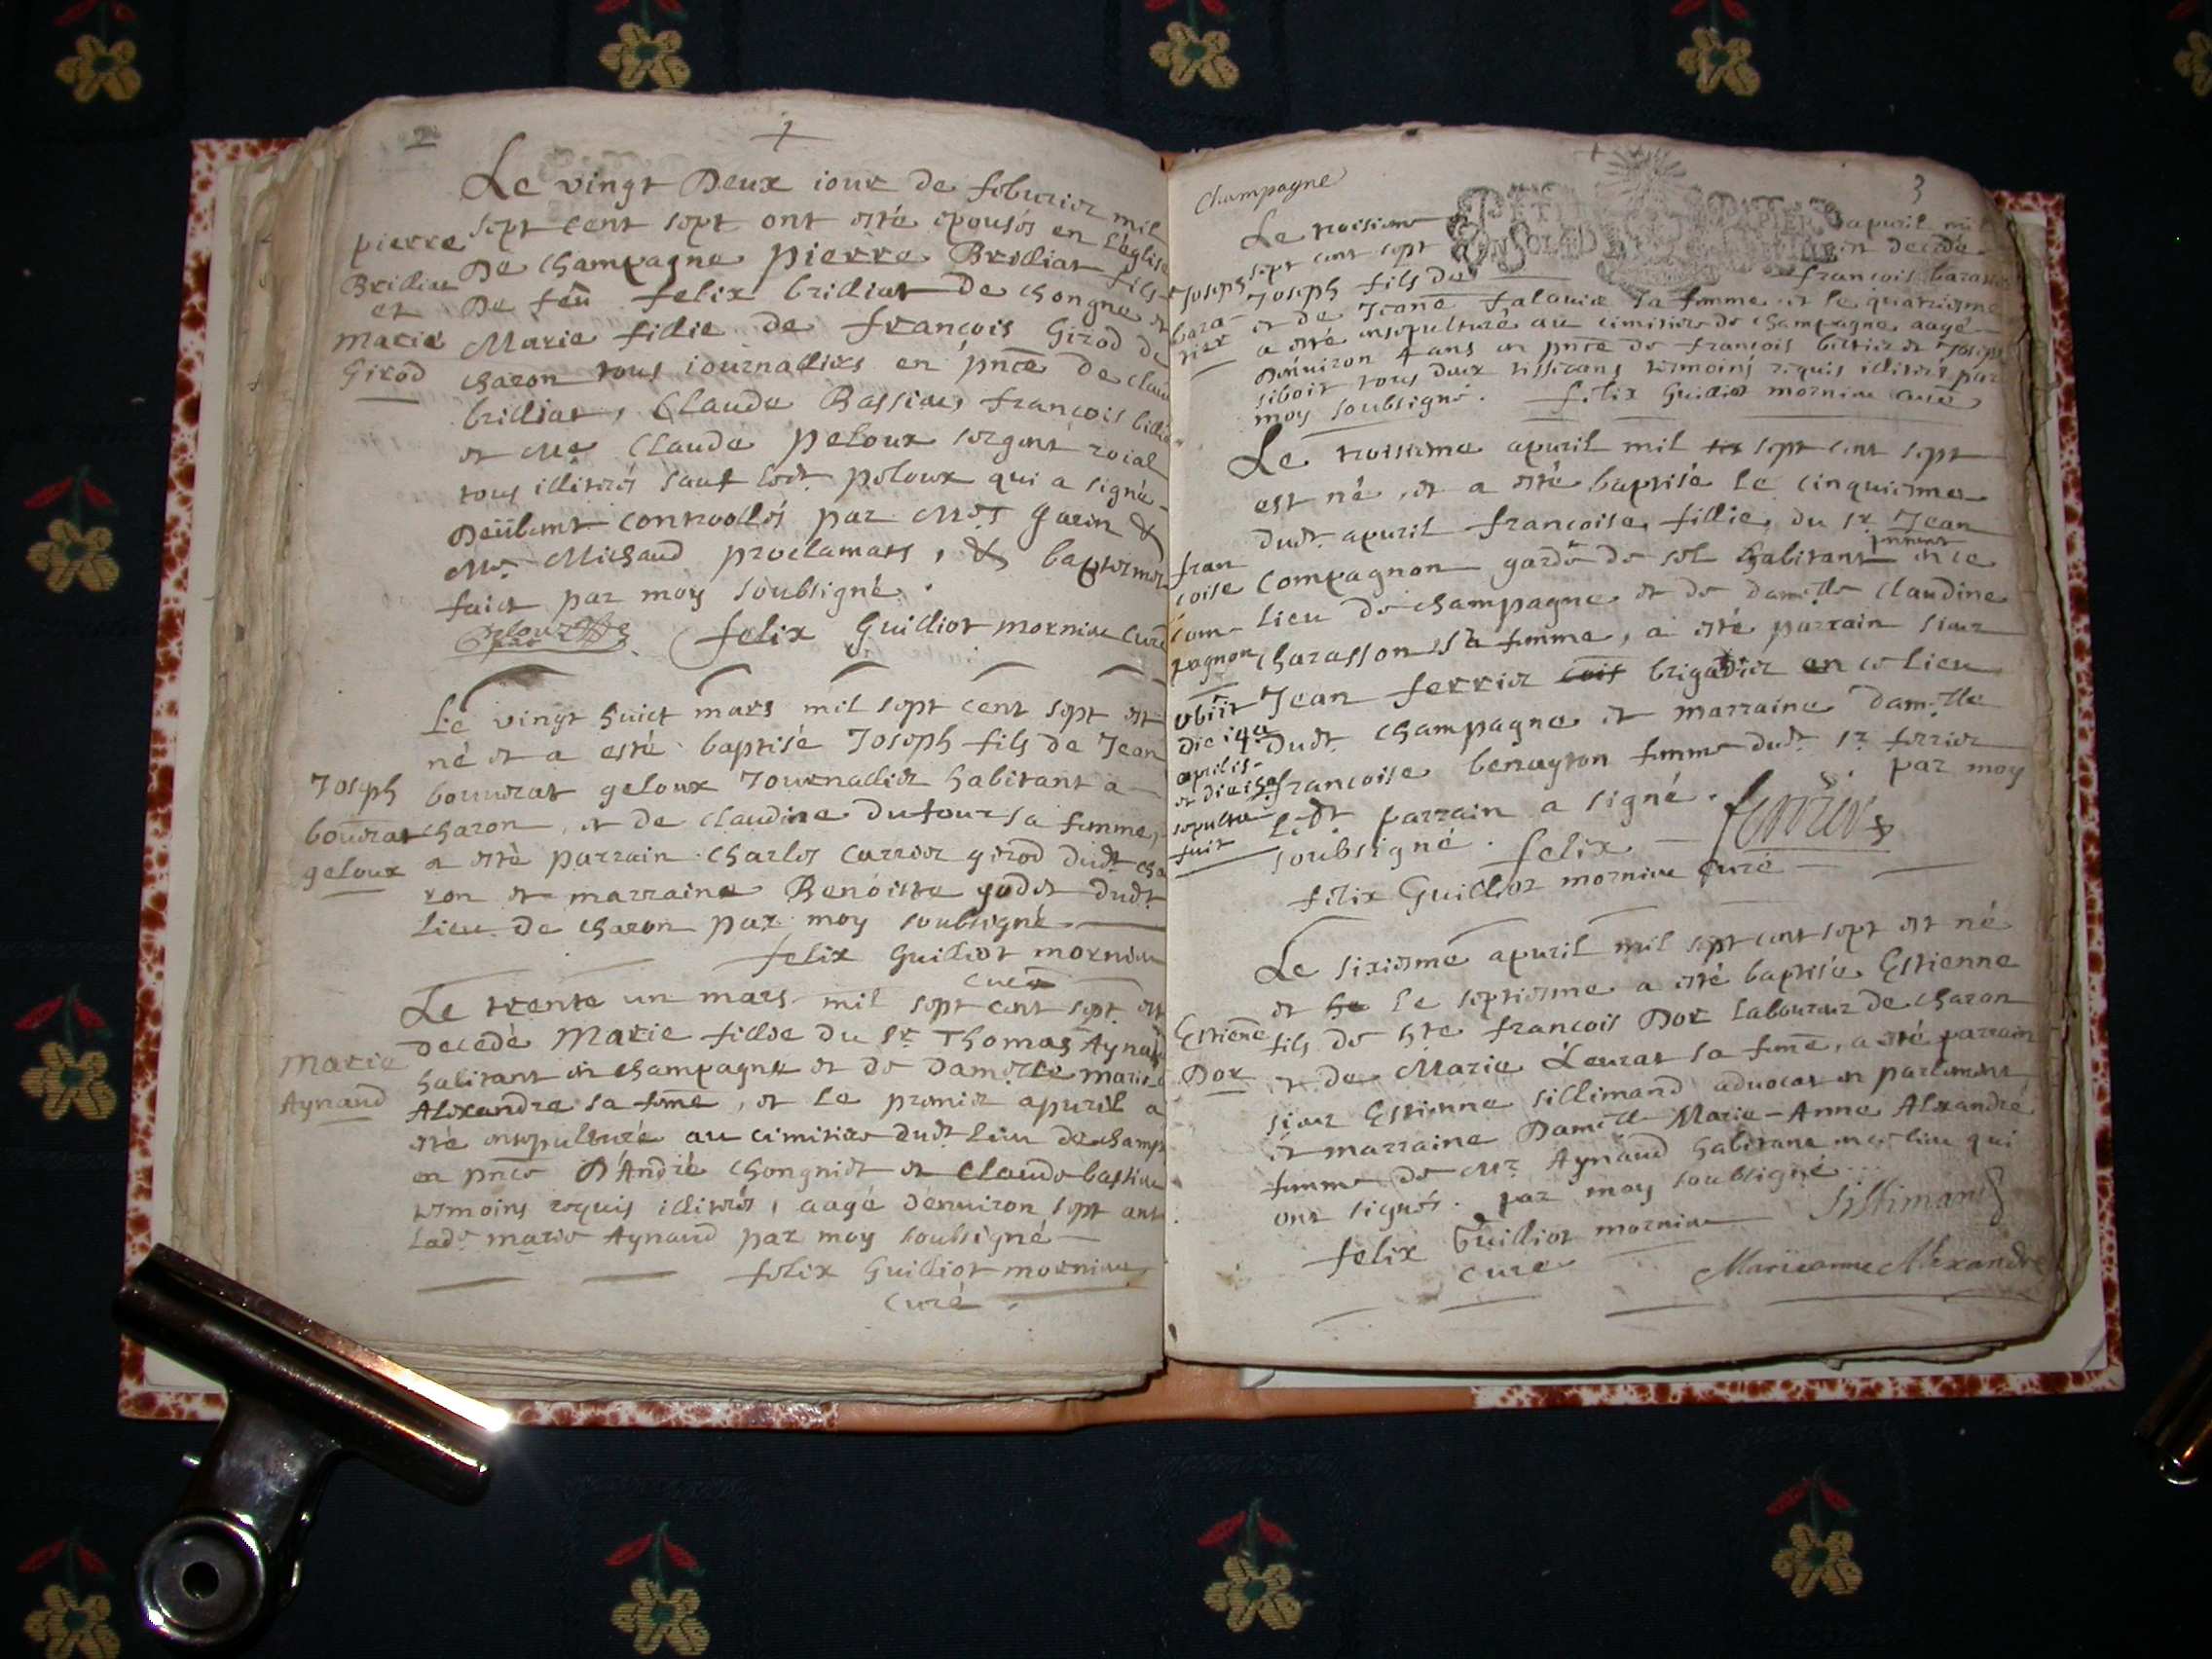 2
Le vingt Deux iour de feburier mil
sept cent sept ont esté epousés en L'eglise
De Champagne pierre Brilliat fils
De feu felix brilliat De chongne et
Marie fillie de françois Girod de
charon tous iournalliers en pnce De claude
brilliat, Claude Bassieu, francois
et Me Claude peloux sergent roial
tous illiterés sauf ledt peloux qui a signé
Deübmt controollés par Mes garin &
Me Michaud proclamats, & baptemes
faict par moy soubsigné.
Peloux felix Guilliot mornieu Curé
pierre
Brilliat
et
Marie
Girod
Le vingt huict mars mil sept cent sept est
né et a esté baptisé Joseph fils de Jean
bouuerat geloux Journallier habitant a
charon, et de claudine Dufour sa femme,
a esté parrain Charles Carrier girod dudt cha
ron et marraine Benoiste godet dudt
Lieu de charon par moy soubsigné
felix Guilliot mornieu
curé
Joseph
bouuerat
geloux
Le trente un mars mil sept cent sept est
decedé Marie fillie du Sr Thomas Aynaud
habitant en champagne et de Damoelle marie
Alexandre sa feme, et le premier apuril a
esté ensepulturé au cimitiere dudt Lieu de champ
en pnce D'André Chongniet et Claude bastieu
temoins requis illiterés, aagé denuiron sept ans
Lade marie Aynaud par moy soubsigné
felix Guilliot mornieu
curé.
Marie
Aynaud
Champagne
3
Le troisieme apuril mil
sept cent sept est decedé
Joseph fils de francois
et de Jeane sa femme et le quatriesme
a esté ensepulturé au cimitiere de Champagne aagé
Denuiron 4 ans en pnce de francois et Joseph
siboit tous deux tisserans temoins requis illiterés par
moy soubsigné. felix Guilliot mornieu curé
Joseph
Le troisieme apuril mil sept cent sept
est né, et a esté baptisé Le cinquiesme
dudt apuril francoise fillie du Sr Jean
Compagnon garde de sel habitant en ce
Lieu de champagne et de damelle claudine
charasson sa femme, a esté parrain sieur
Jean ferrier brigadier en ce lieu
dudt champagne et marraine damelle
francoise benayton femme dudt sr ferrier
Ledt parrain a signé. par moy
soubsigné. felix ferrier
felix Guilliot mornieu Curé
fran
coise
com-
pagnon
obiit
die 14a
aprilis
et die 15a
sepulta
fuit
Le sixiesme apuril mil sept cent sept est né
et le septiesme a esté baptisé Estienne
fils de hte francois Dor Laboureur de charon
et de Marie Leurat sa feme, a esté parrain
sieur Estienne sillimand aduocat en parlement
et marraine Damelle Marie-Anne Alexandre
femme de Mr Aynaud habitant en ce lieu qui
ont signés. par moy soubsigné
felix Guilliot mornieu Sillimand
cure Marieanne Alexandre
Estiene
Dor